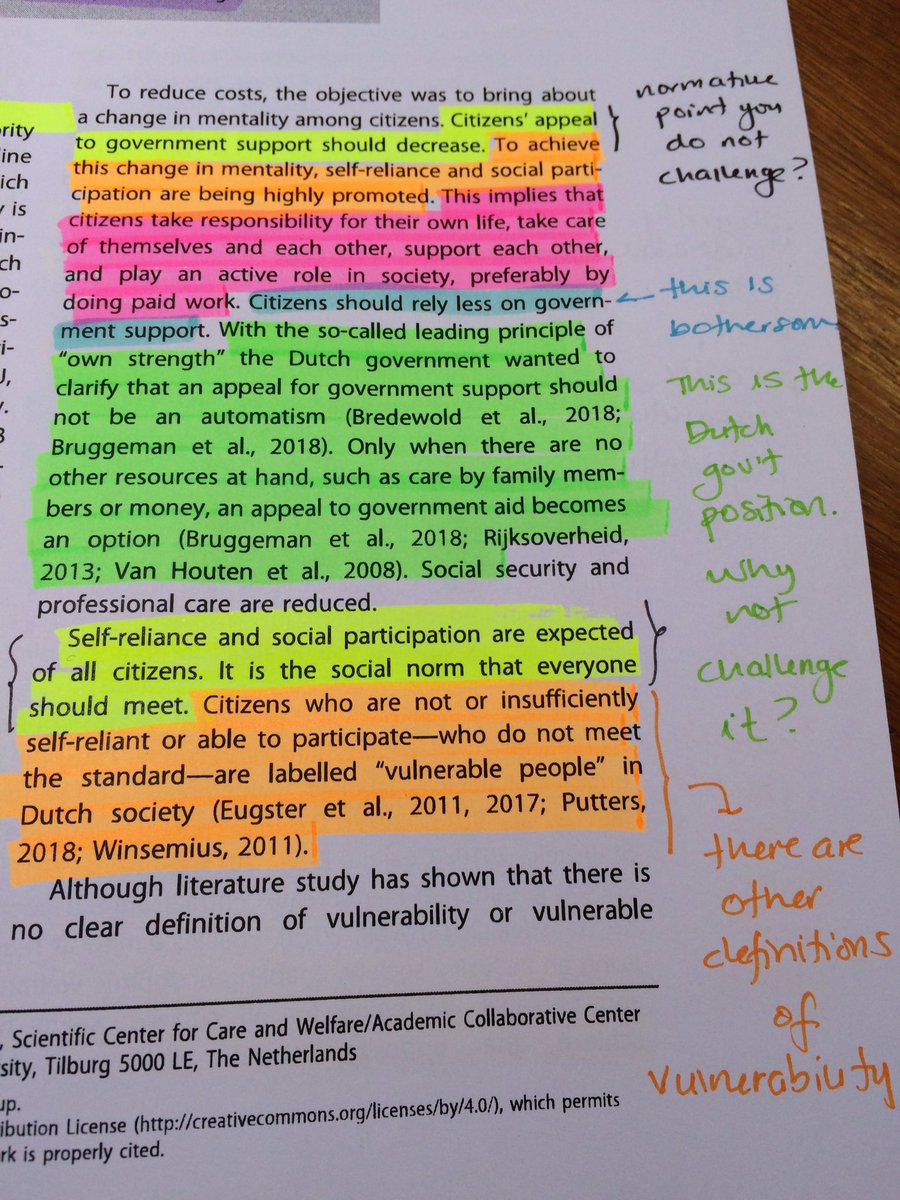 ority
line
ich
y is
in-
ch
o-
s-
i-
J,
y.
3
To reduce costs, the objective was to bring about
a change in mentality among citizens. Citizens’ appeal
to government support should decrease. To achieve
this change in mentality, self-reliance and social parti-
cipation are being highly promoted. This implies that
citizens take responsibility for their own life, take care
of themselves and each other, support each other,
and play an active role in society, preferably by
doing paid work. Citizens should rely less on govern-
ment support. With the so-called leading principle of
“own strength” the Dutch government wanted to
clarify that an appeal for government support should
not be an automatism (Bredewold et al., 2018;
Bruggeman et al., 2018). Only when there are no
other resources at hand, such as care by family mem-
bers or money, an appeal to government aid becomes
an option (Bruggeman et al., 2018; Rijksoverheid,
2013; Van Houten et al., 2008). Social security and
professional care are reduced.
Self-reliance and social participation are expected
of all citizens. It is the social norm that everyone
should meet. Citizens who are not or insufficiently
self-reliant or able to participate—who do not meet
the standard—are labelled “vulnerable people” in
Dutch society (Eugster et al., 2011, 2017; Putters,
2018; Winsemius, 2011).
Although literature study has shown that there is
no clear definition of vulnerability or vulnerable
normative
point you
do not
challenge?
this is
bothersom
This is the
Dutch
gov't
position.
Why
not
challenge
it?
there are
other
definitions
of
vulnerability
, Scientific Center for Care and Welfare/Academic Collaborative Center
sity, Tilburg 5000 LE, The Netherlands
up.
ibution License (http://creativecommons.org/licenses/by/4.0/), which permits
rk is properly cited.